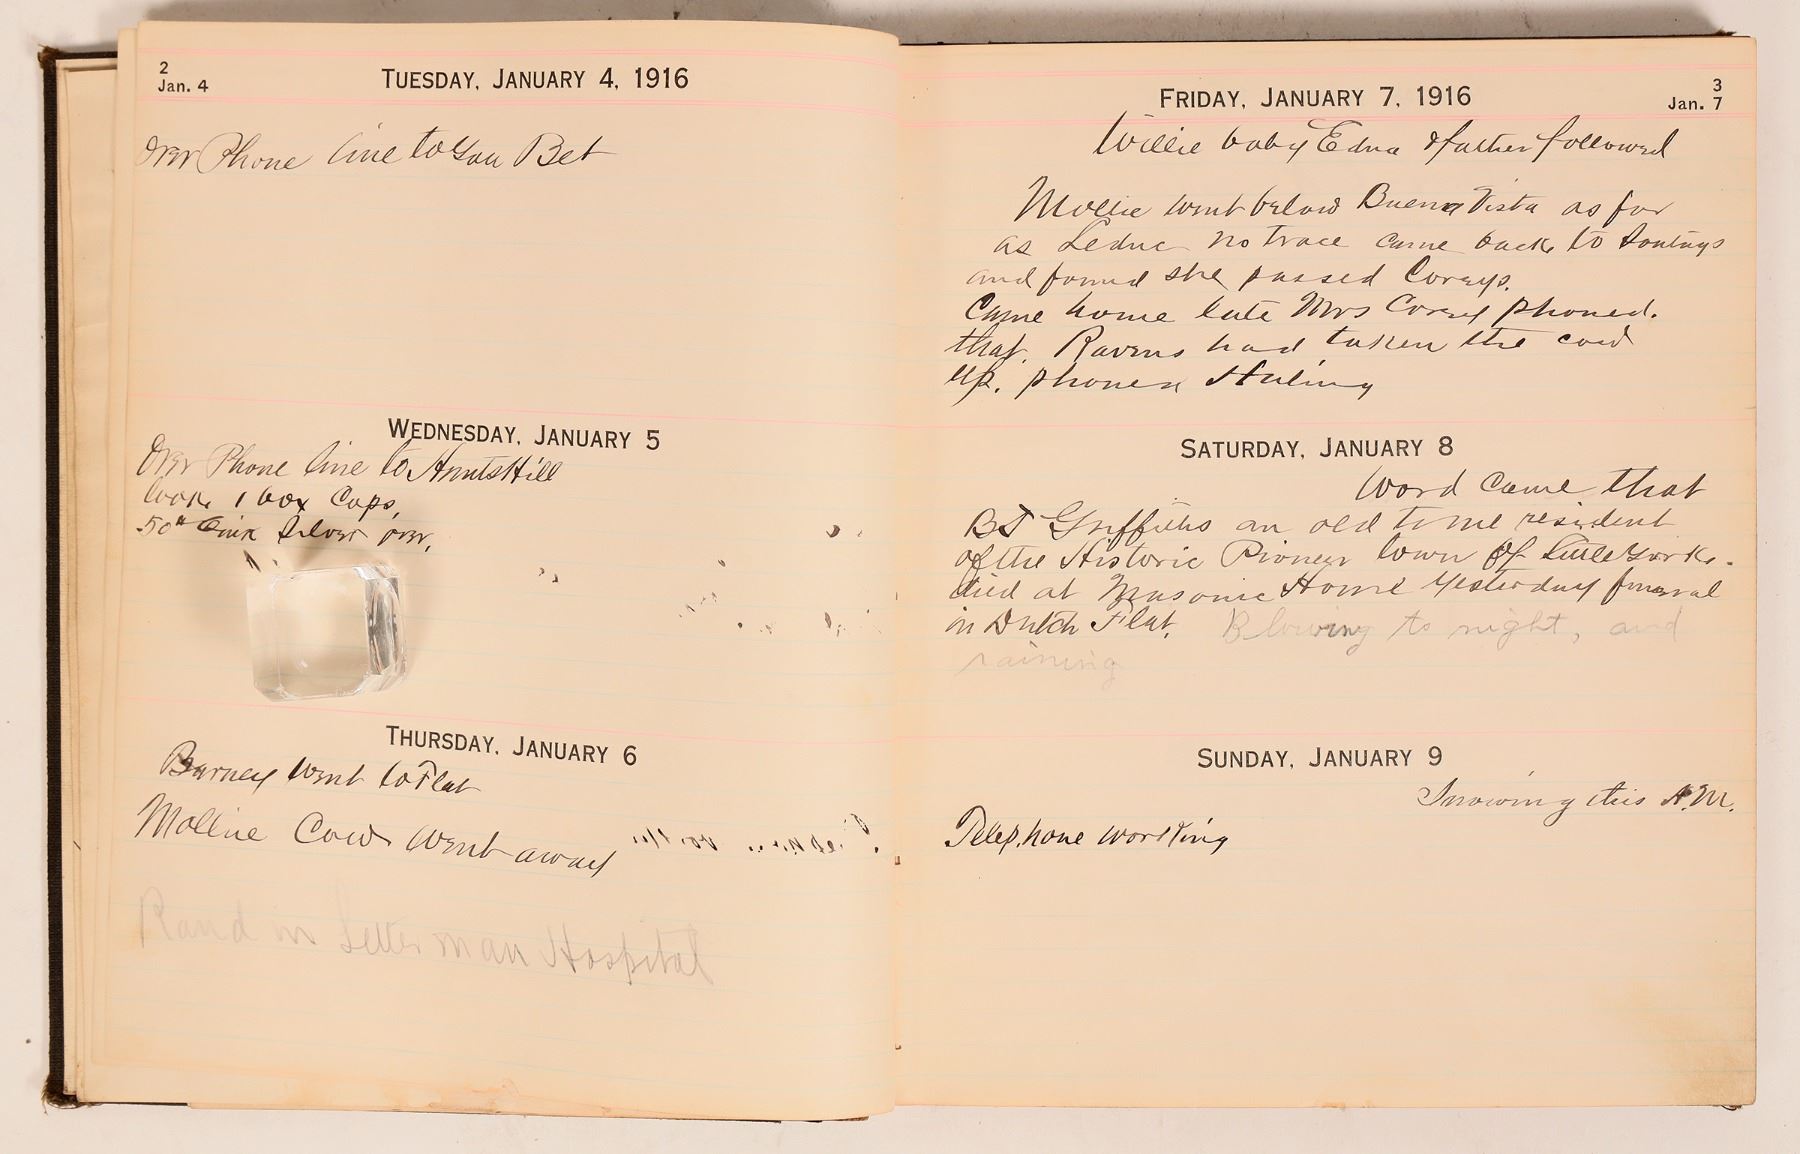 2
Jan. 4
TUESDAY, JANUARY 4, 1916
Over Phone line to You Bet
WEDNESDAY, JANUARY 5
Over Phone line to Hunts Hill
took 1 box Caps,
50# Silver over,
THURSDAY, JANUARY 6
Barney went to Flat
Mollie Cow went away
Rand in Letterman Hospital
3
Jan. 7
FRIDAY, JANUARY 7, 1916
Willie baby Edna & father followed
Mollie went below Buena Vista as for
as Leduc no trace came back to
and found she passed Coreys.
Came home late Mrs Corey phoned.
that. Ravens had taken the cow
up. phoned
SATURDAY, JANUARY 8
Word came that
BJ Griffiths an old time resident
of the Historic Pioneer town of Little York.
died at Masonic Home yesterday funeral
in Dutch Flat. Blowing to night, and
raining
SUNDAY, JANUARY 9
Snowing this A.M.
Telephone working